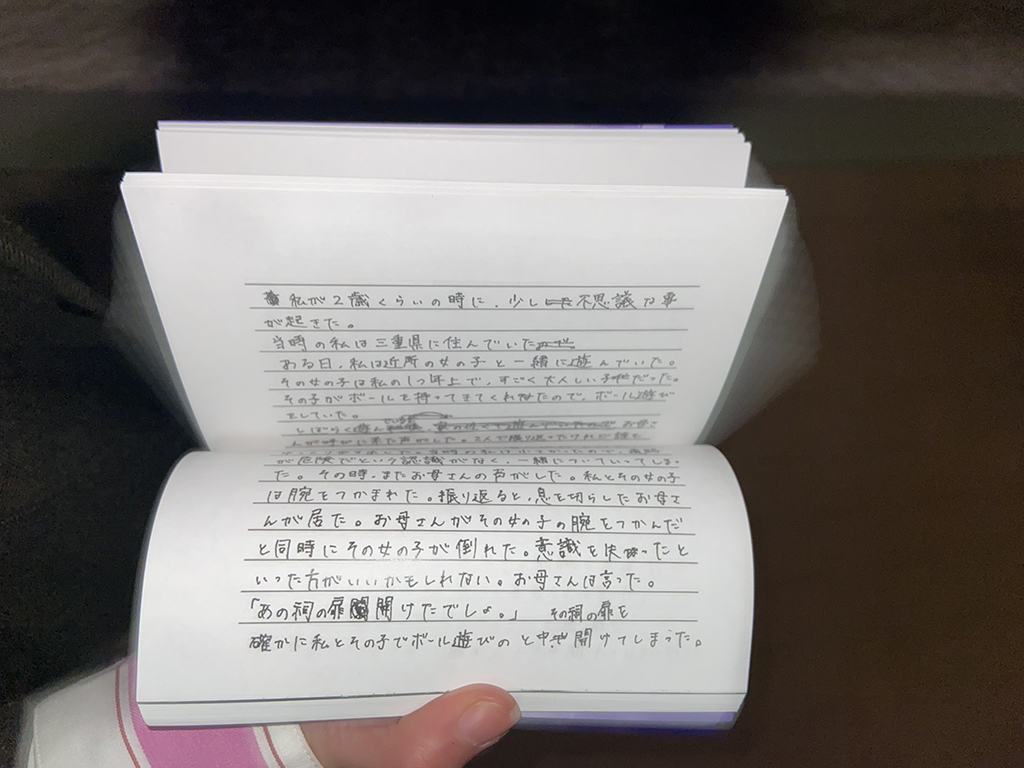 私が2歳くらいの時に、少し不思議な事
が起きた。
当時の私は三重県に住んでいた
ある日、私は近所の女の子と一緒に遊んでいた。
その女の子は私の1つ年上で、すごく大人しい子だった。
その子がボールを持ってきてくれたので、ボール遊び
をしていた。
しばらく遊ん お母さ
んが呼びに来た声がした。2人で振り返ったけれど誰も
が危険だという認識がなく、一緒についていってしまっ
た。その時、またお母さんの声がした。私とその女の子
は腕をつかまれた。振り返ると、息を切らしたお母さ
んが居た。お母さんがその女の子の腕をつかんだ
と同時にその女の子が倒れた。意識を失ったと
いった方がいいかもしれない。お母さんは言った。
「あの祠の扉開けたでしょ。」 その祠の扉を
確かに私とその子でボール遊びのと中開けてしまった。